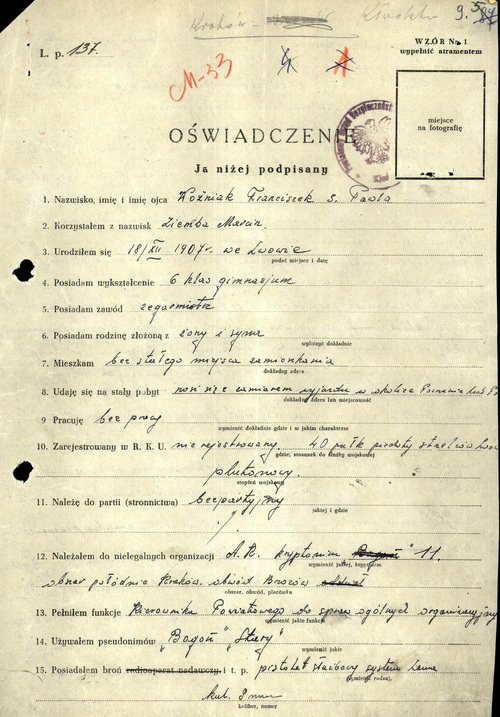 Kraków -
9.
L. p. 137.
WZÓR Nr 1
wypełnić atramentem
M-33
miejsce
na fotografię
OŚWIADCZENIE
Ja niżej podpisany
1. Nazwisko, imię i imię ojca Woźniak Franciszek s. Pawła
2. Korzystałem z nazwisk Ziemba Marcin
3. Urodziłem się 18/XII 1907 r. we Lwowie
podać miejsce i datę
4. Posiadam wykształcenie 6 klas gimnazjum
5. Posiadam zawód zegarmistrz
6. Posiadam rodzinę złożoną z żony i syna
wyliczyć dokładnie
7. Mieszkam bez stałego miejsca zamieszkania
dokładny adres
8. Udaję się na stały pobyt nosi się z zamiarem wyjazdu w okolice Poznania lub
dokładny adres lub miejscowość
9 Pracuję bez pracy
wymienić dokładnie gdzie i w jakim charakterze
10. Zarejestrowany w R. K. U. nie rejestrowany. 40 pułk piechoty strzelców
gdzie, stosunek do służby wojskowej
plutonowy.
stopień wojskowy
11. Należę do partii (stronnictwa) bezpartyjny
jakiej i gdzie
12. Należałem do nielegalnych organizacji A.K. kryptonim "11.
wymienić jakiej, kryptonim
obszar południe Kraków. obwód Brzozów
obszar, obwód, placówka
13. Pełniłem funkcje Kierownika Powiatowego do spraw ogólnych organizacyjny
wymienić jakie funkcje
14. Używałem pseudonimów "Bogoń" "Stary"
wymienić jakie
15. Posiadałem broń radioaparat nadawczy i t. p. pistolet służbowy system
wymienić rodzaj,
kal. 9 mm
kaliber, numer